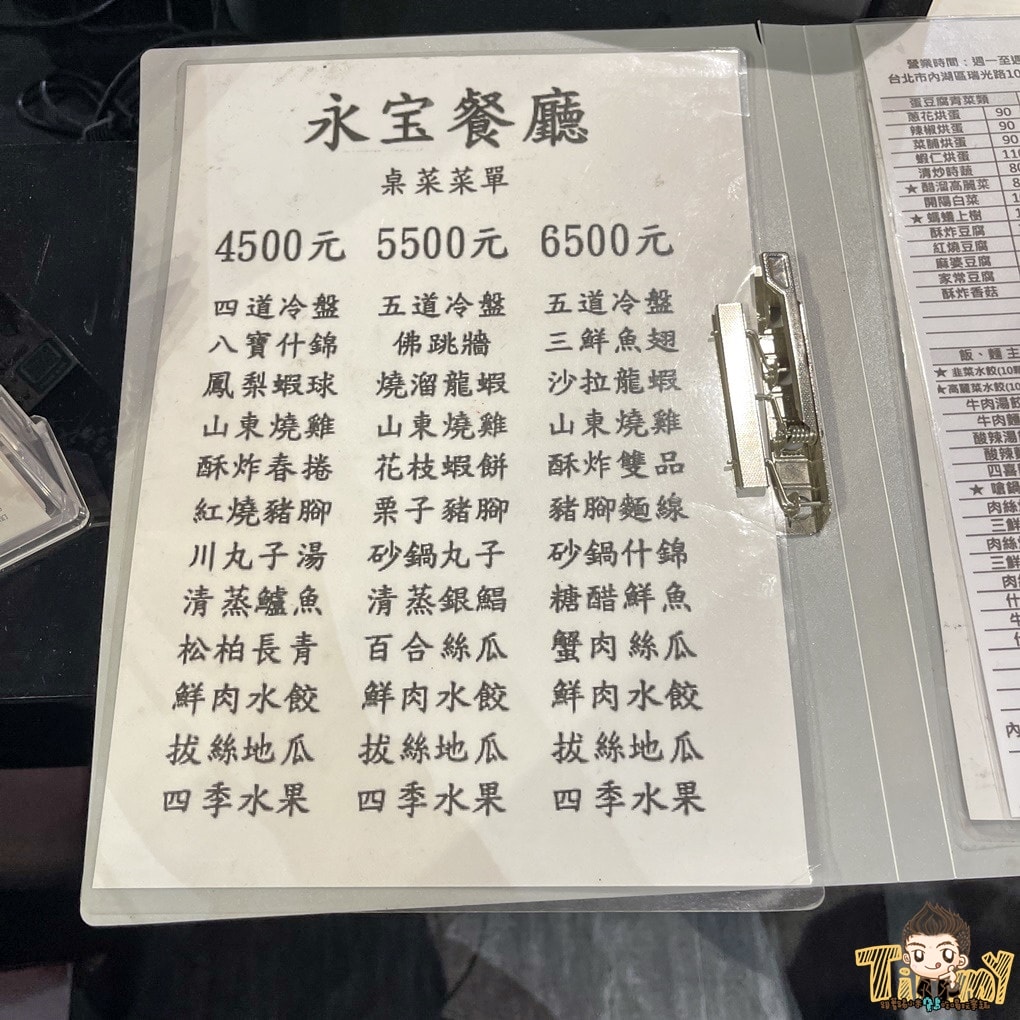 永宝餐廳
桌菜菜單
4500元 5500元 6500元
四道冷盤 五道冷盤 五道冷盤
八寶什錦 佛跳牆 三鮮魚翅
鳳梨蝦球 燒溜龍蝦 沙拉龍蝦
山東燒雞 山東燒雞 山東燒雞
酥炸春捲 花枝蝦餅 酥炸雙品
紅燒豬腳 栗子豬腳 豬腳麵線
川丸子湯 砂鍋丸子 砂鍋什錦
清蒸鱸魚 清蒸銀鯧 糖醋鮮魚
松柏長青 百合絲瓜 蟹肉絲瓜
鮮肉水餃 鮮肉水餃 鮮肉水餃
拔絲地瓜 拔絲地瓜 拔絲地瓜
四季水果 四季水果 四季水果
營業時間：週一至週
台北市內湖區瑞光路10
蛋豆腐青菜類
蔥花烘蛋 90
辣椒烘蛋 90
菜脯烘蛋 90
蝦仁烘蛋 110
清炒時蔬 80
★ 醋溜高麗菜 8
開陽白菜 1
★ 螞蟻上樹 1
酥炸豆腐
紅燒豆腐
麻婆豆腐
家常豆腐
酥炸香菇
飯、麵主
★ 韭菜水餃(10顆
★高麗菜水餃(10
牛肉湯餃
牛肉麵
酸辣湯
酸辣
四喜
★ 嗆鍋
肉絲
三鮮
肉絲
三鮮
肉
什
牛
什
內
Timmy